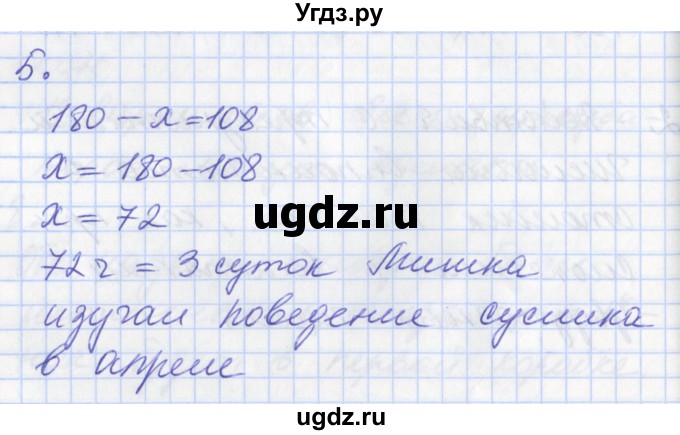 Угдз.ру
5.
180 - x = 108
x = 180 - 108
x = 72
ugdz.ru
72 г = 3 суток Мишка
изучал поведение суслика
в апреле
ugdz.ru